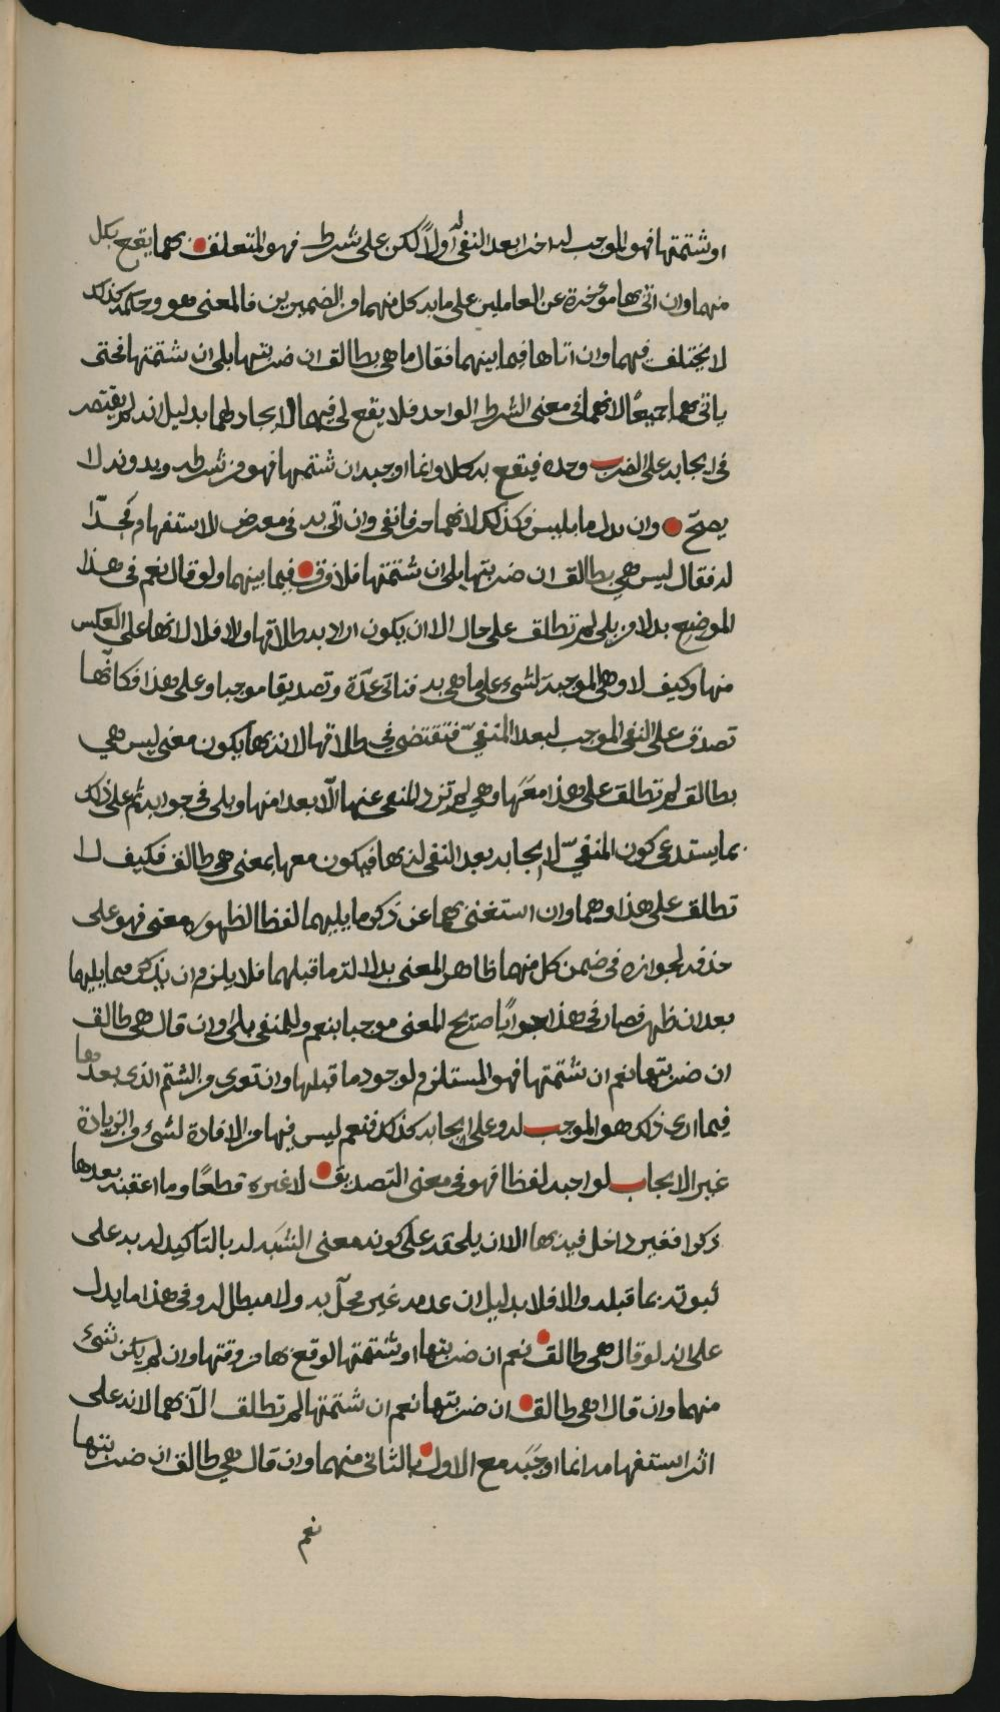 او شتمتها فهو الموجب له اخرا بعد النفى له أولاً لكن على شرط فهو المتعلق بهما يقع بكل
منهما وان اتى بها مؤخرة عن العاملين على ما بد كل منهما من الضميرين فالمعنى هو وحكمه كذلك
لا يختلف فيهما وان اتاها فيما بينهما فقال ما هى بطالق ان ضربتها بلى ان شتمتها فحتى
ياتى بهما جميعًا لانهما فى معنى الشرط الواحد فلا يقع لى فيها الايجاد لهما بدليل انه لم يقتصر
فى ايجابه على الضرب وحده فيقع به كلا وانما اوجبه ان شتمتها فهو من شرطه وبدونه لا
يصحّ وان بدل ما بليس فكذلك لانهما حرفا نفى وان اتى به فى معرض الاستفهام
له فقال ليس هى بطالق ان ضربتها بلى ان شتمتها فلا فرق فيما بينهما ولو قال نعم فى هذا
الموضع بدلا من بلى لم تطلق على حال الا ان يكون اراد به طلاقها والا فلا لانها على العكس
منها وكيف لا وهى الموجبة لشىء على ما هى به فتاتى عدّة وتصديقا موجبا وعلى هذا فكأنها
تصدق على النفى الموجب لبعد المنفىّ فتقتضى فى طلاقها لانه بها يكون معنى ليس هى
بطالق لم تطلق على هذا معَهَا وهى لم تزد للنفى عنها الّا بعدا منها وبلى فى جوابه تم على ذلك
بما يستدعى كون المنفىّ لايجابه بعد النفى لنه بها فيكون معها بمعنى هى طالق فكيف لا
تطلق على هذا وهما وان استغنى بهما عن ذكر ما يليهما لفظا لظهوره معنى فهو على
حذفه لجوازه فى ضمن كل منهما ظاهر المعنى بدلالة ما قبلهما فلا يلزم ان يذكر فيما يليها
بعد ان ظهر فصار فى هذا جوابًا صريح المعنى موجبا بنعم وللمنفى بلى وان قال هى طالق
ان ضربتها نعم ان شتمتها فهو المستلزم لوجود ما قبلها وان تعرى من الشتم الذى بعدها
فيما ارى ذلك هو الموجب له وعلى ايجابه كذلك فنعم ليس فيها من الافادة لشىء من الزيادة
غير الايجاب لو اجبه لفظا فهو فى معنى التصديق لا غيره قطعًا وما اعقبه بعدها
ذكرا فغير داخل فيه بها الا ان يلحقه على كونه معنى الشبه له بالتاكيد له به على
ثبوته بما قبله والا فلا بدليل ان عدمه غير مخلّ به ولا مبطل له وفى هذا ما يدل
على انه لو قال هى طالق نعم ان ضربتها او شتمتها لوقع بها من وقتها وان لم يكن شىء
منهما وان قال اهى طالق ان ضربتها نعم ان شتمتها لم تطلق الّا بهما لانه على
اثر استفهامه انما اوجَبَه مع الاول بالثانى منهما وان قال هى طالق ان ضربتها
نعم